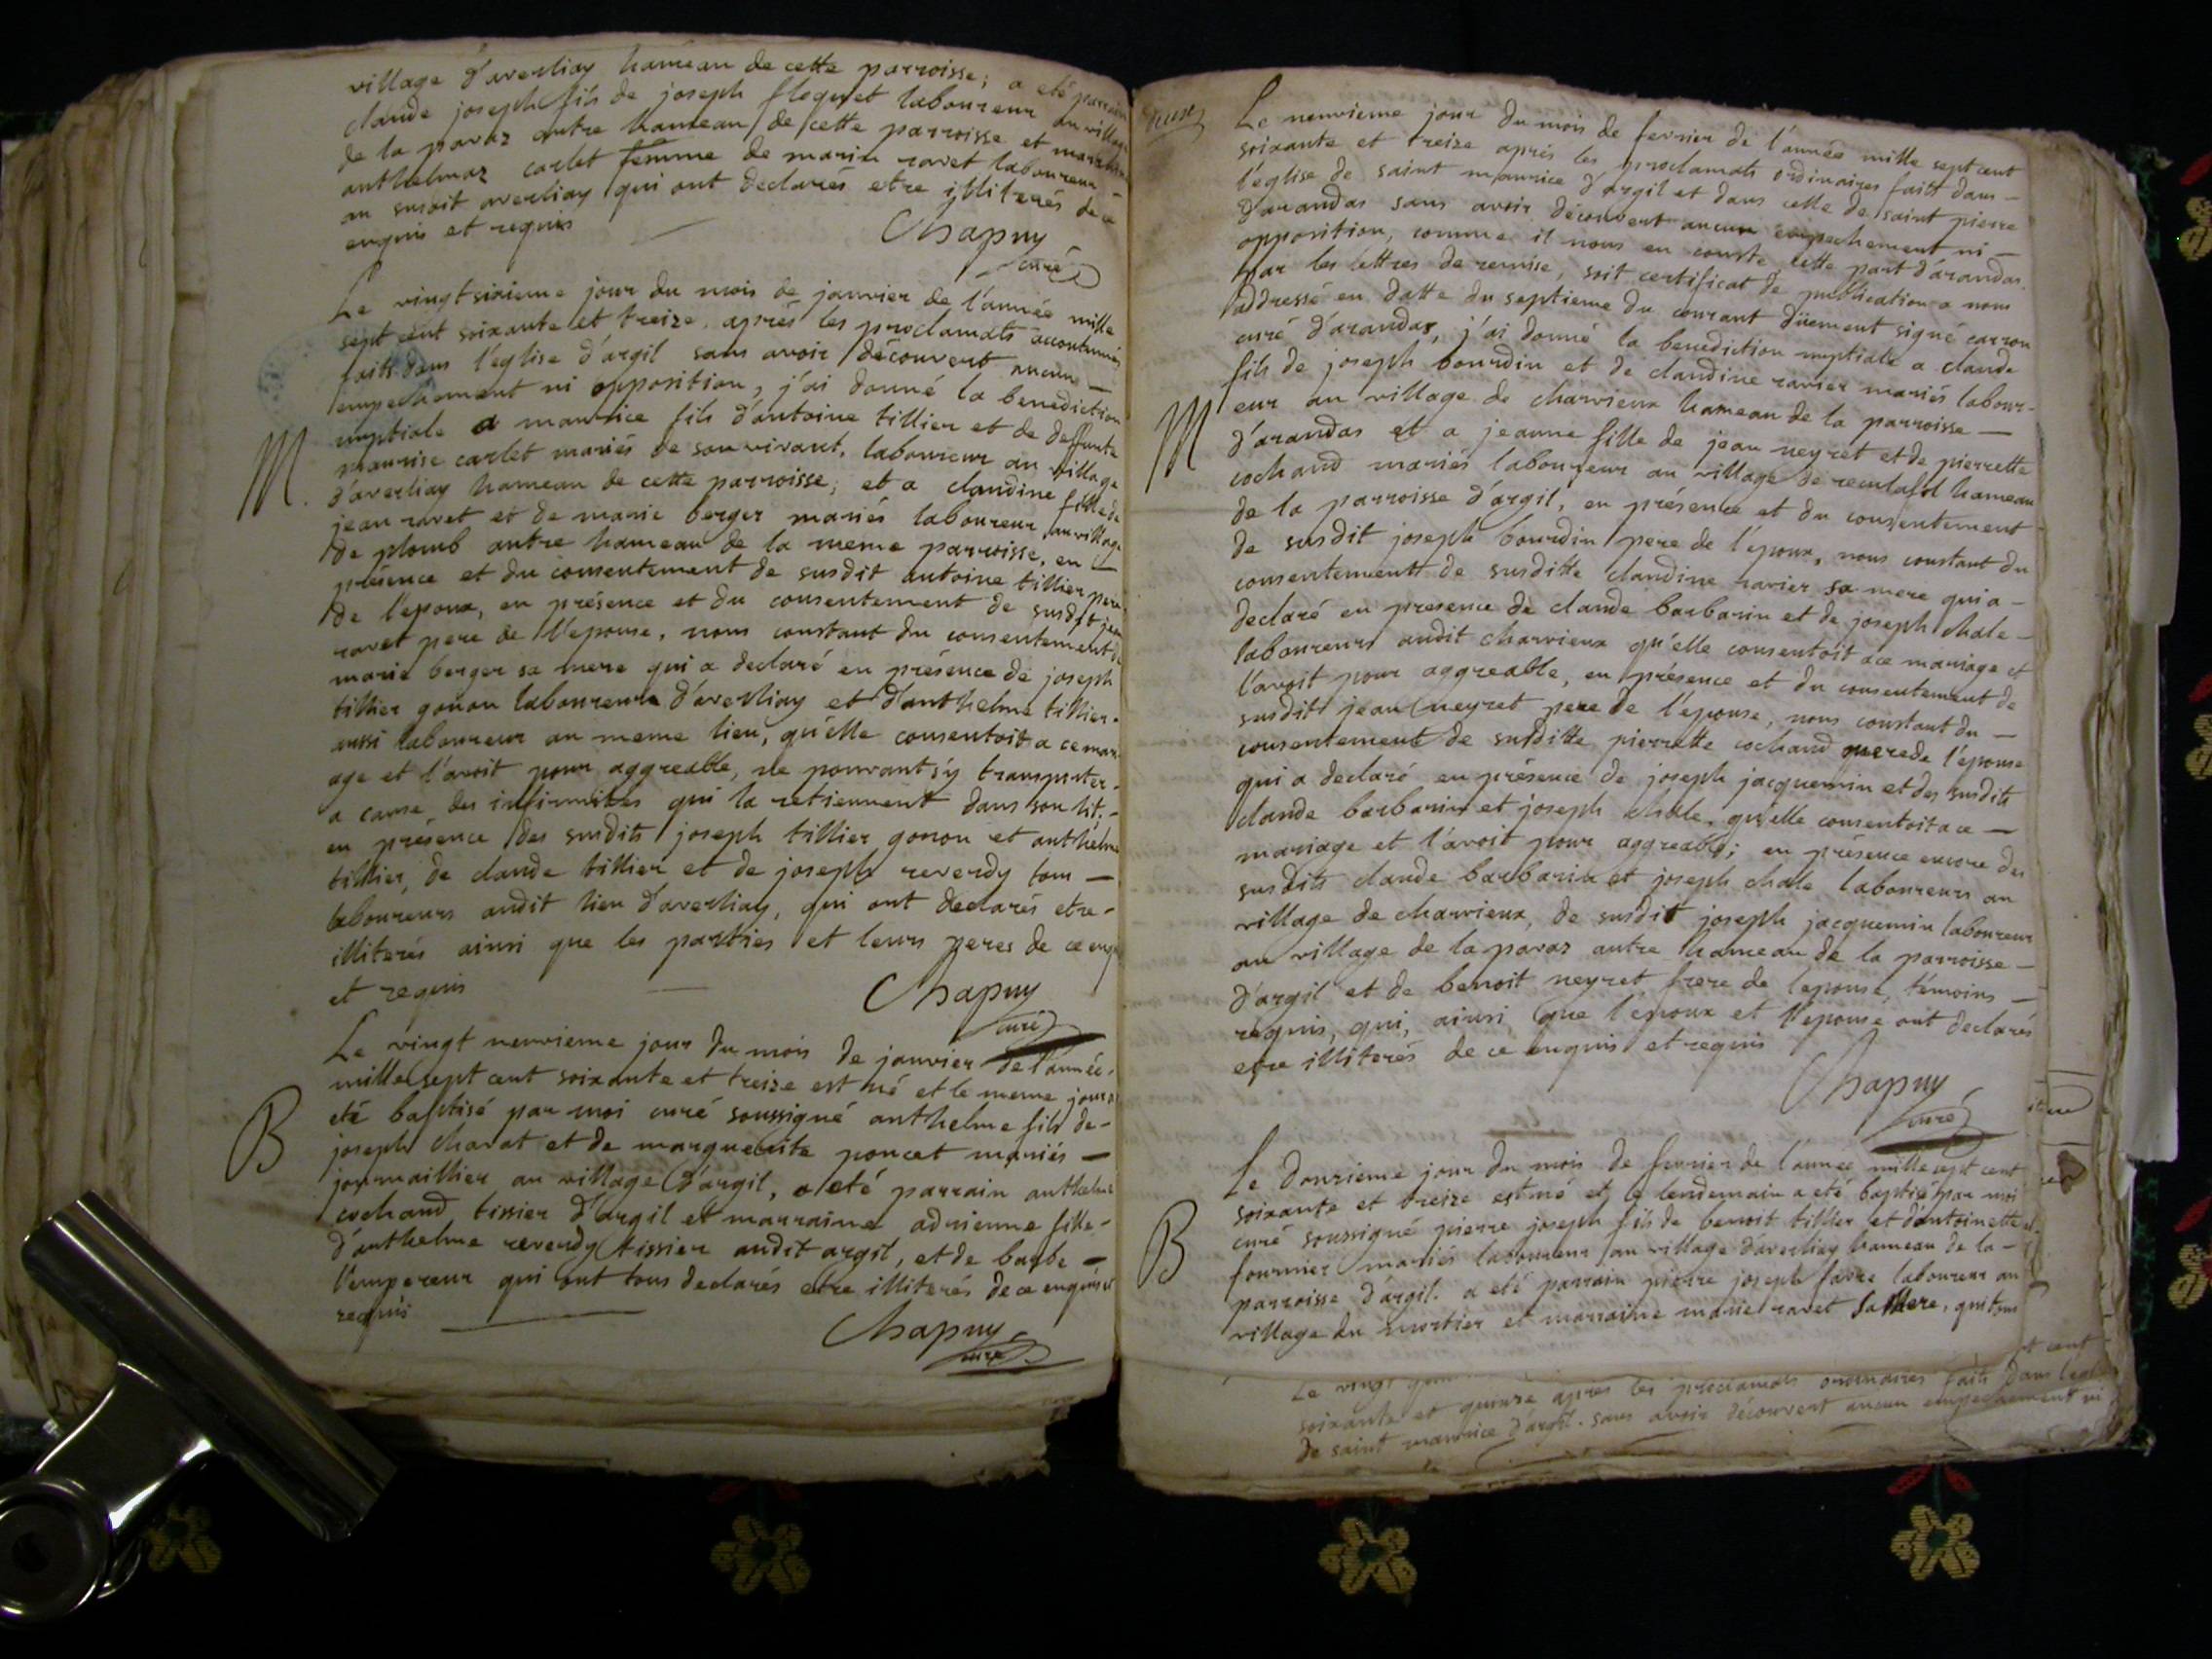 village d'averliay hameau de cette parroisse; a eté parrain
claude joseph fils de joseph floquet laboureur au village
de la pavaz autre hameau de cette parroisse et marraine
anthelmaz carlet femme de marin ravet laboureur
au susdit averliay qui ont declarés etre illiterés de ce
enquis et requis
Chapuy
curé
Le vingt sixieme jour du mois de janvier de l'année mille
sept cent soixante et treize, aprés les proclamats accoutumés
faits dans l'eglise d'argil sans avoir découvert aucun —
empechement ni opposition, j'ai donné la benediction
nuptiale a maurice fils d'antoine tillier et de deffunte
maurise carlet mariés de son vivant, laboureur au village
M.
d'averliay hameau de cette parroisse; et a claudine fille de
jean ravet et de marie berger mariés laboureur au village
de plomb autre hameau de la meme parroisse, en
présence et du consentement de susdit antoine tillier pere
de l'epoux, en présence et du consentement de susdit jean
ravet pere de l'epouse, nous constant du consentement de
marie berger sa mere qui a declaré en présence de joseph
tillier gonon laboureur d'averliay et d'anthelme tillier
aussi laboureur au meme lieu, qu'elle consentoit a ce mari
age et l'avoit pour aggreable, ne pouvant s'y transporter
a cause des infirmites qui la retiennent dans son lit. -
en présence des susdits joseph tillier gonon et anthelme
tillier, de claude tillier et de joseph reverdy tous —
laboureurs audit lieu d'averliay, qui ont declarés etre -
illiterés ainsi que les parties et leurs peres de ce enquis
et requis
Chapuy
curé
Le vingt neuvieme jour du mois de janvier de l'année
mille sept cent soixante et treize est né et le meme jour a
eté baptisé par moi curé soussigné anthelme fils de -
B
joseph charat et de marguerite poncet mariés —
journaillier au village d'argil, a eté parrain anthelme
cochand tissier d'argil et marraine adrienne fille -
d'anthelme reverdy tissier audit argil, et de barbe —
l'empereur qui ont tous declarés etre illiterés de ce enquis et
requis
Chapuy
curé
Le neuvieme jour du mois de fevrier de l'année mille sept cent
soixante et treize aprés les proclamats ordinaires faits dans -
l'eglise de saint maurice d'argil et dans celle de saint pierre
d'arandas sans avoir découvert aucun empechement ni -
opposition, comme il nous en conste cette part d'arandas
par les lettres de remise, soit certificat de publication a nous
addressé en datte du septieme du courant düement signé carron
curé d'arandas, j'ai donné la benediction nuptiale a claude
fils de joseph bourdin et de claudine ravier mariés labour-
eur au village de charvieux hameau de la parroisse —
M
d'arandas et a jeanne fille de jean neyret et de pierrette
cochand mariés laboureur au village de reculafol hameau
de la parroisse d'argil, en présence et du consentement
de susdit joseph bourdin pere de l'epoux, nous constant du
consentement de susditte claudine ravier sa mere qui a -
declaré en presence de claude barbarin et de joseph chale -
laboureurs audit charvieux qu'elle consentoit a ce mariage et
l'avoit pour aggreable, en présence et du consentement de
susdit jean neyret pere de l'epouse, nous constant du —
consentement de susditte pierrette cochand mere de l'epouse
qui a declaré en présence de joseph jacquemin et des susdits
claude barbarin et joseph chale, qu'elle consentoit a ce —
mariage et l'avoit pour aggreable; en présence encore des
susdits claude barbarin et joseph chale laboureurs au
village de charvieux, de susdit joseph jacquemin laboureur
au village de la pavaz autre hameau de la parroisse -
d'argil et de benoit neyret frere de l'epouse, témoins —
requis, qui, ainsi que l'epoux et l'epouse ont declarés
etre illiterés de ce enquis et requis
Chapuy
curé
Le douzieme jour du mois de fevrier de l'année mille sept cent
soixante et treize est né et le lendemain a eté baptisé par moi
curé soussigné pierre joseph fils de benoit tillier et d'antoinette
B
fournier mariés laboureur au village d'averliay hameau de la -
parroisse d'argil. a eté parrain pierre joseph favre laboureur au
village du mortier et marraine marie ravet sa mere, qui tous
Le vingt
soixante et quinze apres les proclamats ordinaires faits dans l'eglise
de saint maurice d'argil. sans avoir découvert aucun empechement ni